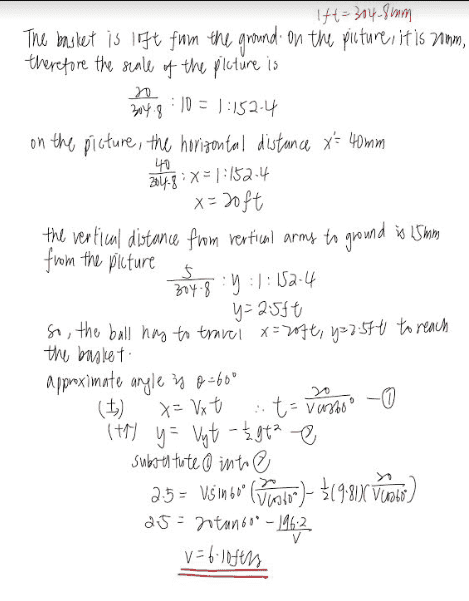 1ft = 304.8mm
The basket is 10ft from the ground. On the picture, it is 20mm,
therefore the scale of the picture is
20/304.8 : 10 = 1:152.4
on the picture, the horizontal distance x' = 40mm
40/304.8 : x = 1:152.4
x = 20ft
the vertical distance from vertical arms to ground is 15mm
from the picture
5/304.8 : y : 1 : 152.4
y = 2.5ft
So, the ball has to travel x = 20ft, y = 2.5ft to reach
the basket.
approximate angle is θ = 60°
(+→) x = Vx t ∴ t = 20/Vcos60° - ①
(+↑) y = Vy t - ½gt² - ②
substitute ① into ②
2.5 = Vsin60° (20/Vcos60°) - ½(9.81)(20/Vcos60°)
2.5 = 20tan60° - 196.2/V
V = 6.10ft/s